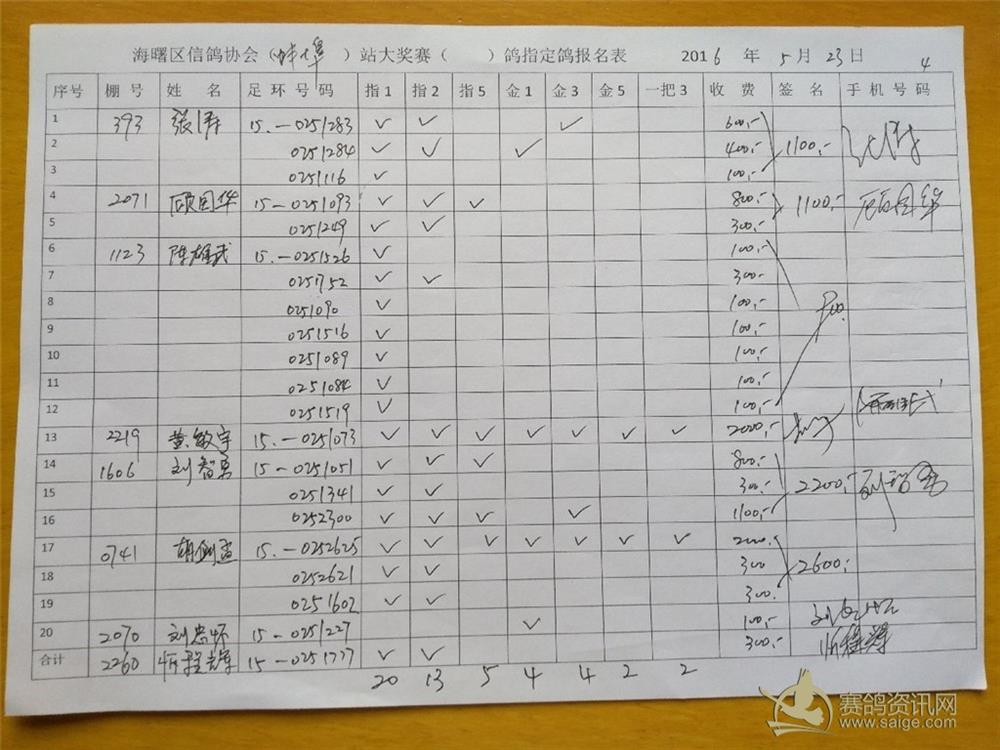 海曙区信鸽协会（蚌埠）站大奖赛（ ）鸽指定鸽报名表 2016 年 5 月 23 日
4
序号 棚号 姓名 足环号码 指1 指2 指5 金1 金3 金5 一把3 收费 签名 手机号码
1 393 张涛 15.-0251283 ✓ ✓ ✓ 600,-
2 0251284 ✓ ✓ ✓ 400,- 1100,-
3 0251116 ✓ 100,-
4 2071 顾国华 15-0251093 ✓ ✓ ✓ 800,- 1100,- 顾国华
5 0251249 ✓ ✓ 300,-
6 1123 陈雄武 15.-0251526 ✓ 100,-
7 0251752 ✓ ✓ 300-
8 0251090 ✓ 100,- 900.
9 0251516 ✓ 100,-
10 0251089 ✓ 100,-
11 0251084 ✓ 100,-
12 0251519 ✓ 100,-
13 2219 黄敏宇 15.-0251073 ✓ ✓ ✓ ✓ ✓ ✓ ✓ 2000,-
14 1606 刘智勇 15-0251051 ✓ ✓ ✓ 800,-
15 0251341 ✓ ✓ 300,- 2200,- 刘智勇
16 0252300 ✓ ✓ ✓ ✓ 1100,-
17 0741 15.-0252625 ✓ ✓ ✓ ✓ ✓ ✓ ✓ 2000.
18 0252621 ✓ ✓ 300 2600,-
19 0251602 ✓ ✓ 300.
20 2070 刘忠怀 15-0251227 ✓ 100,-
合计 2260 忻程辉 15-0251777 ✓ ✓ 300,-
20 13 5 4 4 2 2
赛鸽资讯网
www.saige.com